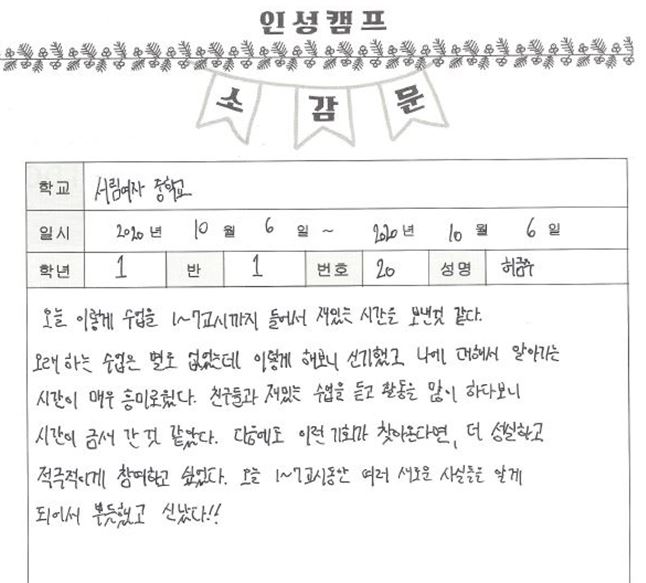 인성캠프
소 감 문
학교 서림여자 중학교
일시 2020 년 10 월 6 일 ~ 2020 년 10 월 6 일
학년 1 반 1 번호 20 성명
오늘 이렇게 수업을 1~7교시까지 들어서 재밌는 시간을 보낸것 같다.
오래 하는 수업은 별로 없었는데 이렇게 해보니 신기했고 나에 대해서 알아가는
시간이 매우 흥미로웠다. 친구들과 재밌는 수업을 듣고 활동을 많이 하다보니
시간이 금새 간 것 같았다. 다음에도 이런 기회가 찾아온다면, 더 성실하고
적극적이게 참여하고 싶었다. 오늘 1~7교시동안 여러 새로운 사실들을 알게
되어서 뿌듯했고 신났다!!